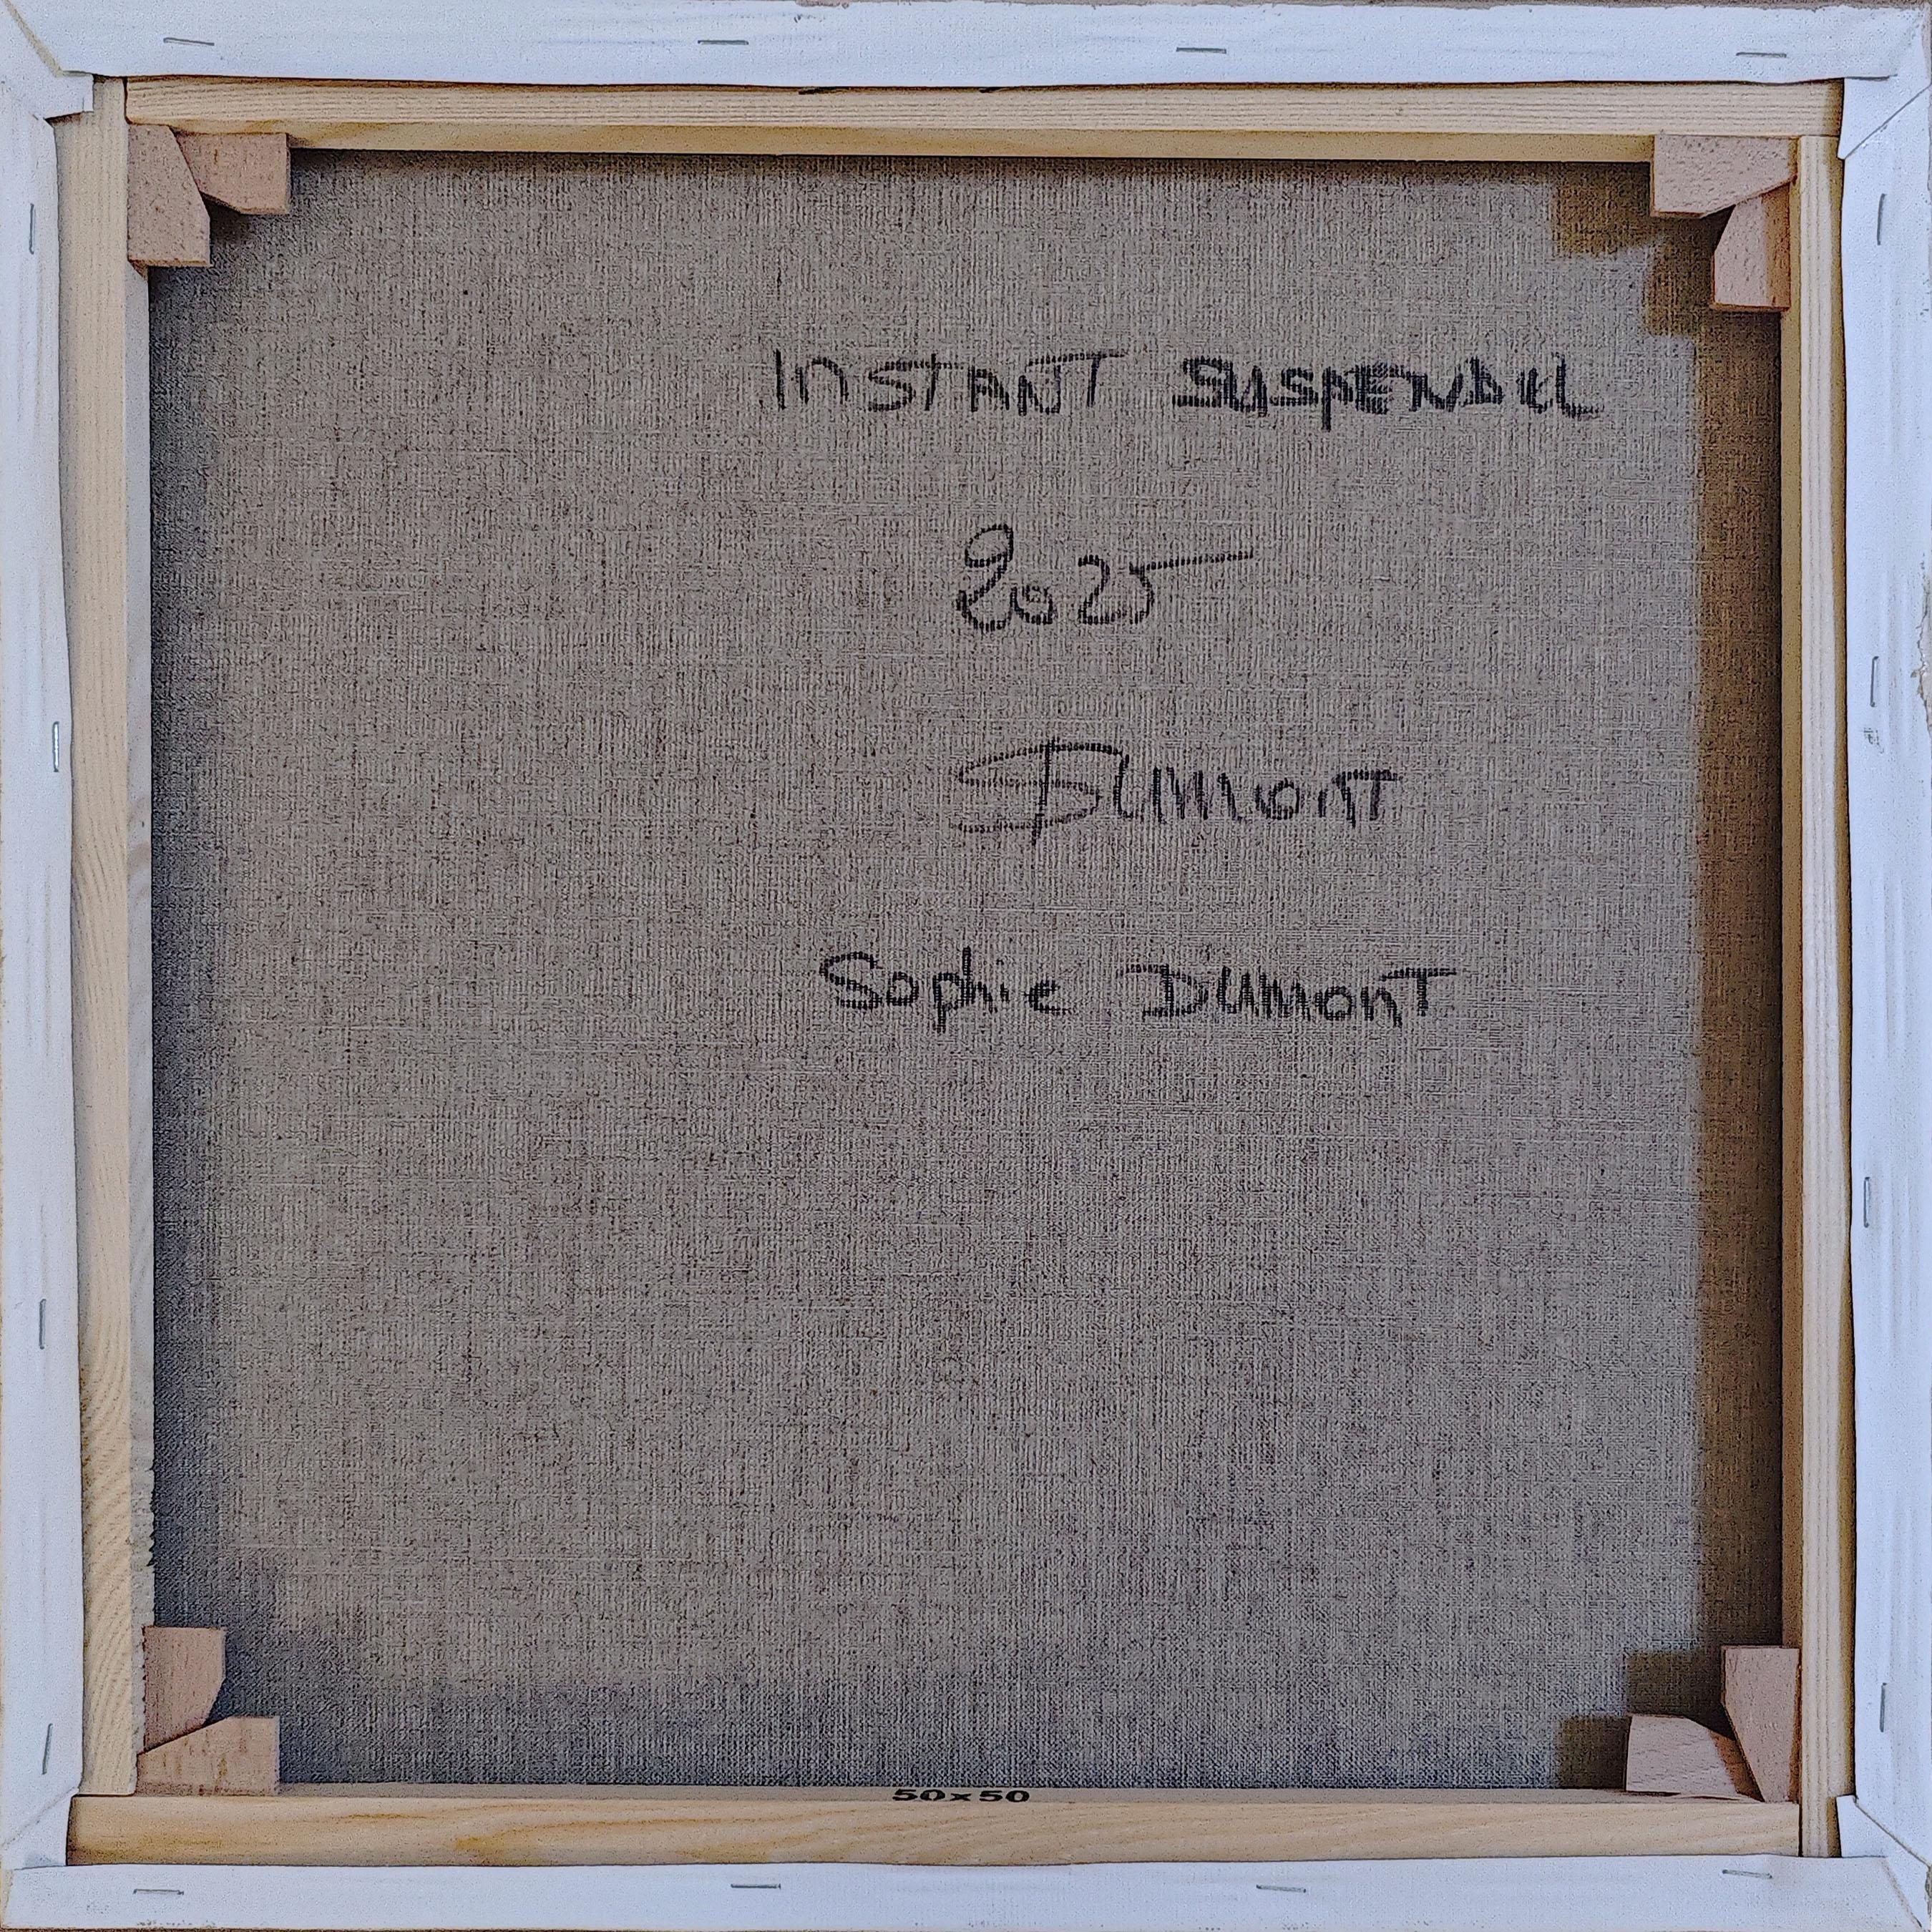 INSTANT SUSPENDU
2025
SDUMONT
Sophie DUMONT
50x50